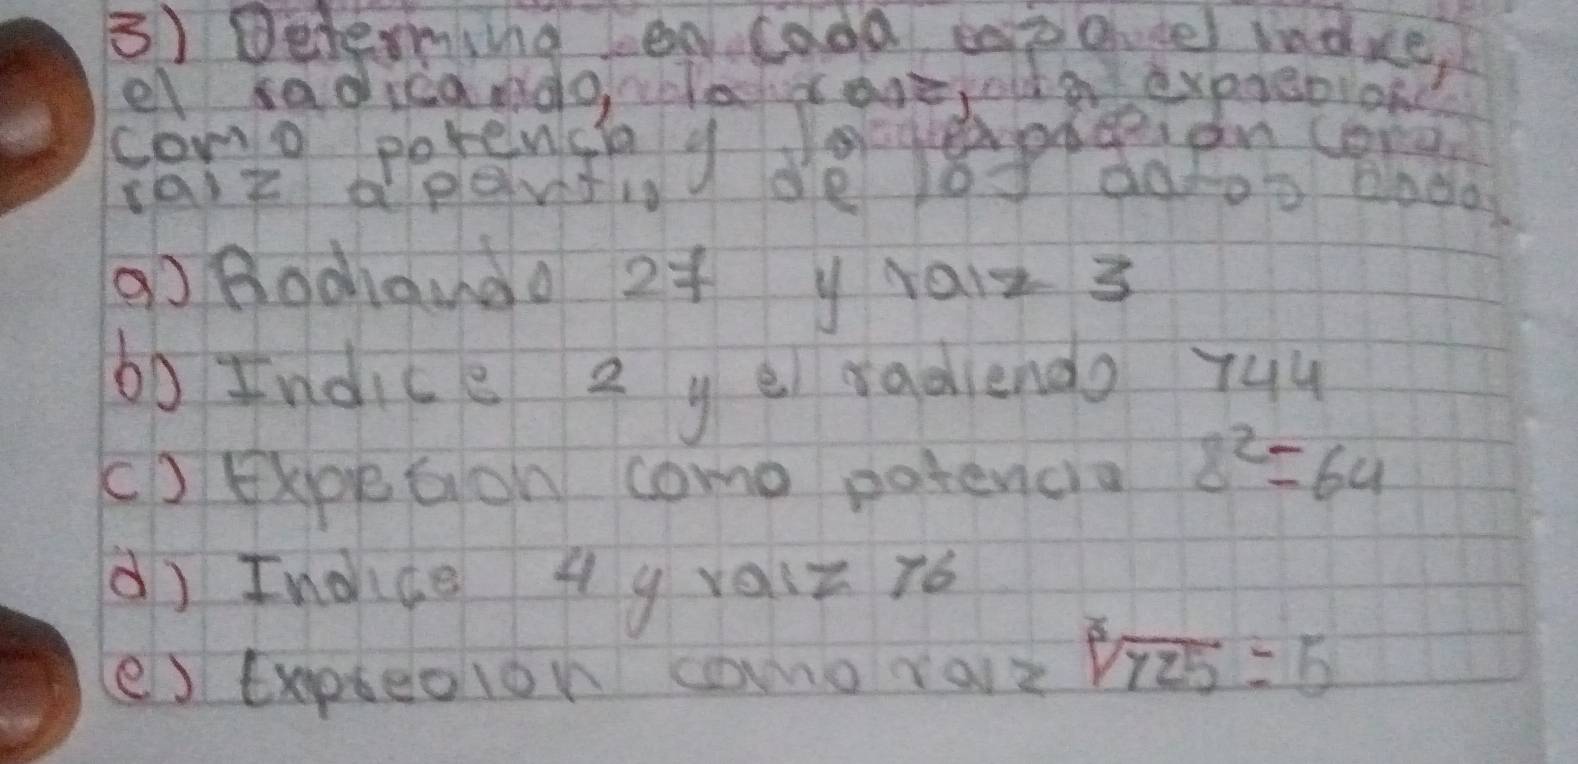 3) Determina en cada caso el indice,
el radicando, la raiz, la expresion
como potencia y la expresion como
raiz a partir de los datos dados
a) Radicando 27 y raiz 3
b) Indice 2 y el radiendo 144
c) Expresion como potencia 8²=64
d) Indice 4 y raiz 16
e) Expresion como raiz ³√125 = 5